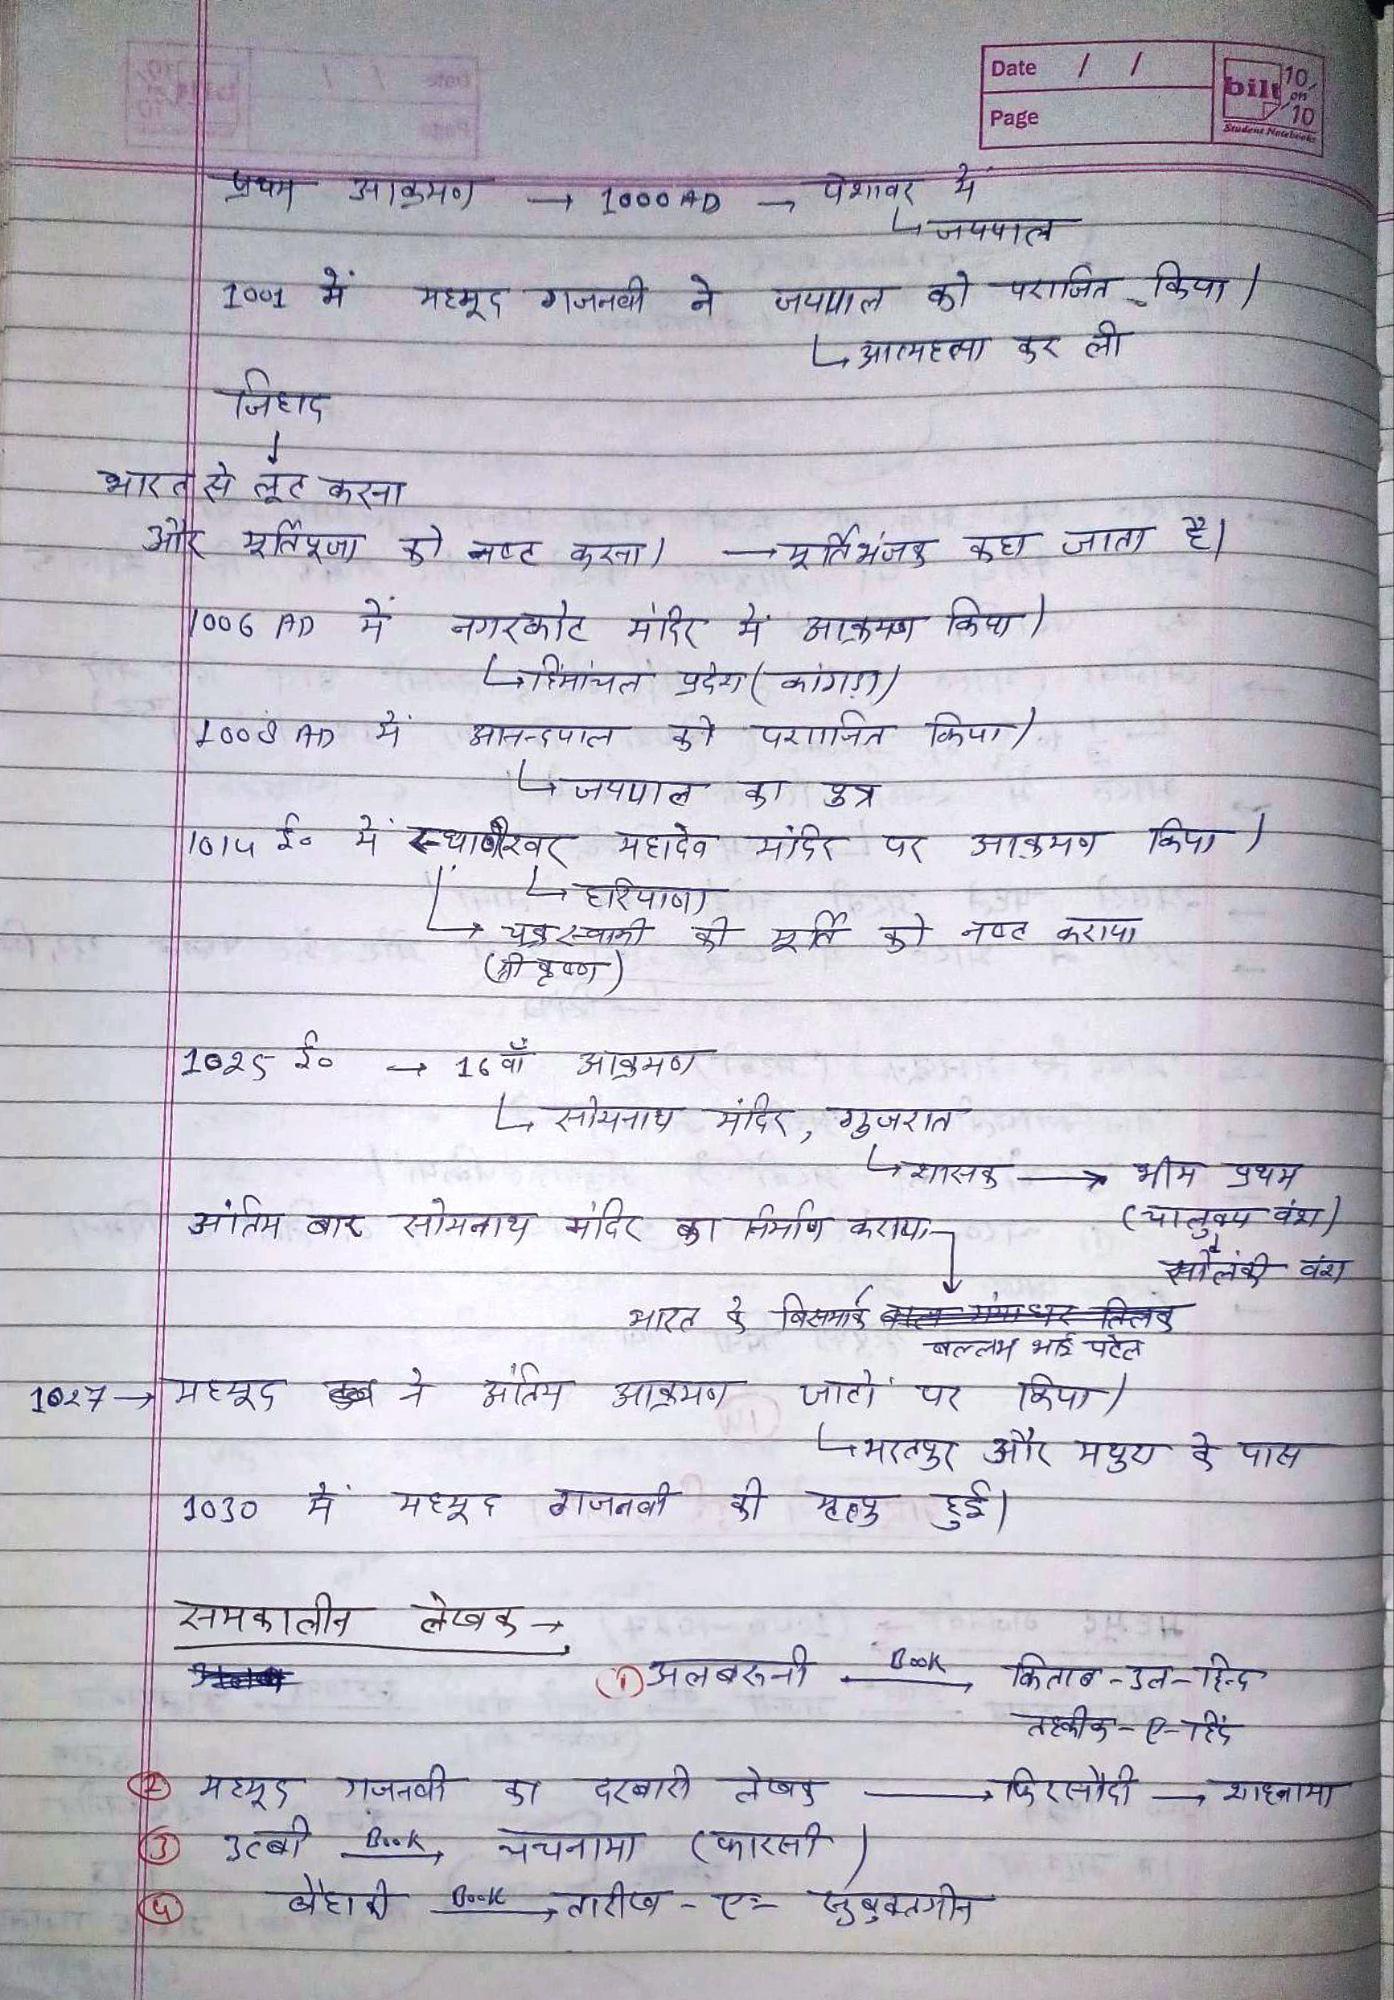 Date / /
Page
bilt 10 on 10
Student Notebooks
प्रथम आक्रमण → 1000 AD → पेशावर में
↳ जयपाल
1001 में महमूद गजनवी ने जयपाल को पराजित किया।
↳ आत्महत्या कर ली
जिहाद
↓
भारत से लूट करना
और मूर्तिपूजा को नष्ट करना। → मूर्तिभंजक कहा जाता है।
1006 AD में नगरकोट मंदिर में आक्रमण किया।
↳ हिमांचल प्रदेश (कांगड़ा)
1008 AD में आनन्दपाल को पराजित किया।
↳ जयपाल का पुत्र
1014 ई० में स्थाणेश्वर महादेव मंदिर पर आक्रमण किया।
↳ हरियाणा
↳ चक्रस्वामी की मूर्ति को नष्ट कराया
(श्री कृष्ण)
1025 ई० → 16 वाँ आक्रमण
↳ सोमनाथ मंदिर, गुजरात
↳ शासक → भीम प्रथम
(चालुक्य वंश)
↓
सोलंकी वंश
अंतिम बार सोमनाथ मंदिर का निर्माण कराया
↓
भारत के बिस्मार्क बाल गंगाधर तिलक
बल्लभ भाई पटेल
1027 → महमूद ने अंतिम आक्रमण जाटों पर किया।
↳ भरतपुर और मथुरा के पास
1030 में महमूद गजनवी की मृत्यु हुई।
समकालीन लेखक →
① अलबरूनी Book → किताब-उल-हिन्द
तहकीक-ए-हिंद
② महमूद गजनवी का दरबारी लेखक → फिरसौदी → शाहनामा
③ उत्बी Book → चचनामा (फारसी)
④ बैहाकी Book → तारीख-ए- सुबुक्तगीन